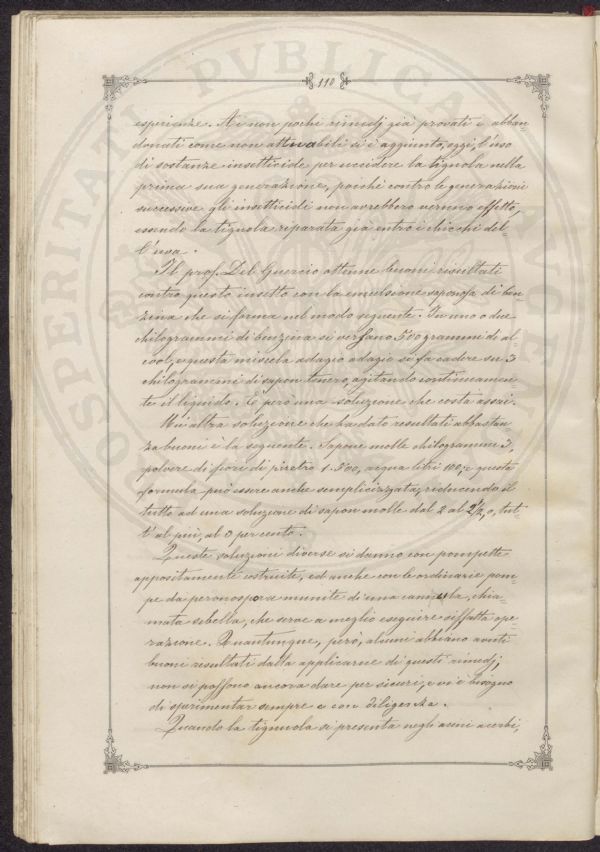 110
esperienze. Ai non pochi rimedj già provati e abban=
donati come non attuabili si è aggiunto, oggi, l'uso
di sostanze insetticide per uccidere la tignola nella
prima sua generazione, poichè contro le generazioni
successive gli insetticidi non avrebbero veruno effetto,
essendo la tignola riparata già entro i chicchi del=
l'uva.
Il prof. Del Guercio ottenne buoni risultati
contro questo insetto con la emulsione saponosa di ben=
zina che si forma nel modo seguente. In uno o due
chilogrammi di benzina si versano 500 grammi di al
cool, e questa miscela adagio adagio si fa cadere su 3
chilogrammi di sapon tenero, agitando continuamen
te il liquido. È però una soluzione che costa assai.
Un'altra soluzione che ha dato resultati abbastan=
za buoni è la seguente. Sapone molle chilogrammi 3,
polvere di fiori di piretro 1.500, acqua litri 100; e questa
formula può essere anche semplicizzata, riducendo il
tutto ad una soluzione di sapon molle dal 2 al 2½, o, tut
t'al più, al 3 per cento.
Queste soluzioni diverse si danno con pompette
appositamente costruite, ed anche con le ordinarie pom
pe da peronospora munite di una cannula, chia=
mata sibella, che serve a meglio eseguire siffatta ope
razione. Quantunque, però, alcuni abbiano avuti
buoni resultati dalla applicazione di questi rimedj,
non si possono ancora dare per sicuri, e vi è bisogno
di sperimentar sempre e con diligenza.
Quando la tignuola si presenta negli acini acerbi,